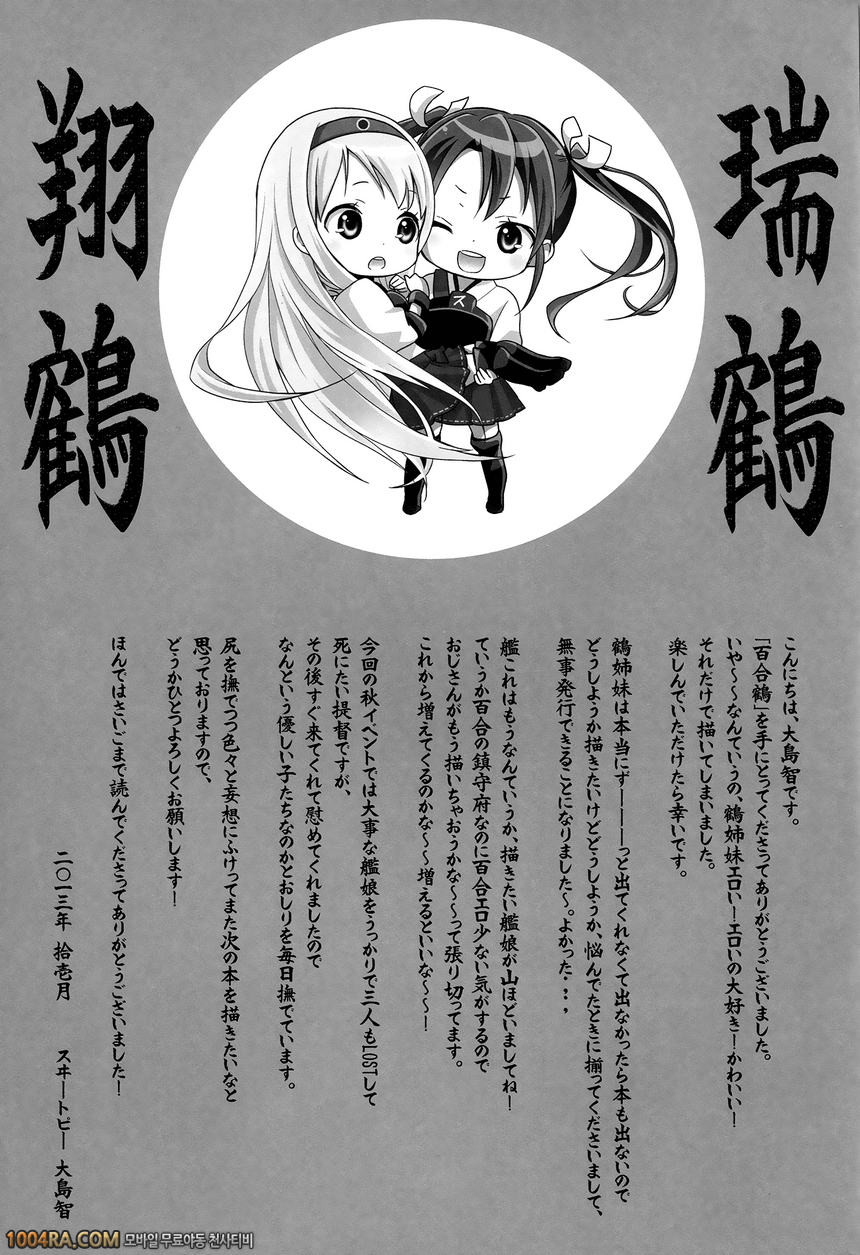 瑞鶴
翔鶴
ス
こんにちは、大島智です。
「百合鶴」を手にとってくださってありがとうございました。
いや～～なんていうの、鶴姉妹エロい！エロいの大好き！かわいい！
それだけで描いてしまいました。
楽しんでいただけたら幸いです。
鶴姉妹は本当にずーーーっと出てくれなくて出なかったら本も出ないので
どうしようか描きたいけどどうしようか、悩んでたときに揃ってくださいまして、
無事発行できることになりました～。よかった・・，
艦これはもうなんていうか、描きたい艦娘が山ほどいましてね！
ていうか百合の鎮守府なのに百合エロ少ない気がするので
おじさんがもう描いちゃおうかな～～って張り切ってます。
これから増えてくるのかな～～増えるといいな～～！
今回の秋イベントでは大事な艦娘をうっかりで三人もLOSTして
死にたい提督ですが、
その後すぐ来てくれて慰めてくれましたので
なんという優しい子たちなのかとおしりを毎日撫でています。
尻を撫でつつ色々と妄想にふけってまた次の本を描きたいなと
思っておりますので、
どうかひとつよろしくお願いします！
ほんではさいごまで読んでくださってありがとうございました！
二〇一三年 拾壱月 スヰートピー 大島智
1004RA.COM 모바일 무료야동 천사티비